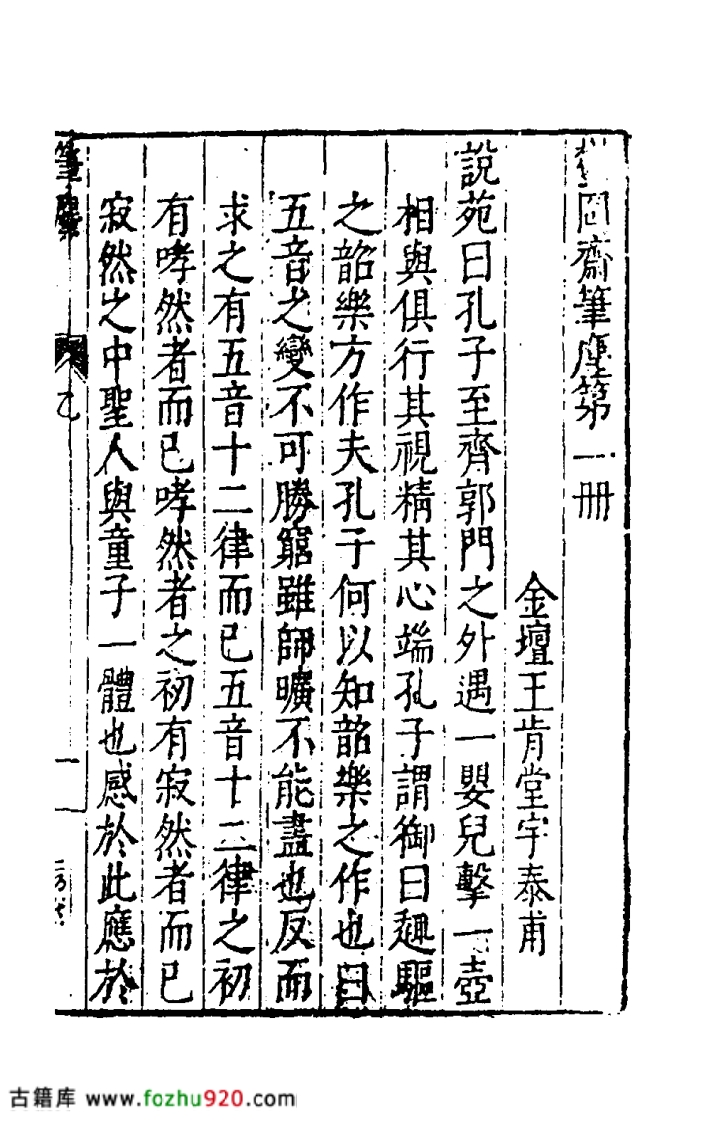 岡齋筆麈第一冊
金壇王肯堂宇泰甫
說苑曰孔子至齊郭門之外遇一嬰兒擊一壺
相與俱行其視精其心端孔子謂御曰趣驅
之韶樂方作夫孔子何以知韶樂之作也曰
五音之變不可勝窮雖師曠不能盡也反而
求之有五音十二律而已五音十二律之初
有哮然者而已哮然者之初有寂然者而已
寂然之中聖人與童子一體也感於此應於
筆麈
乙
一
古籍库 www.fozhu920.com